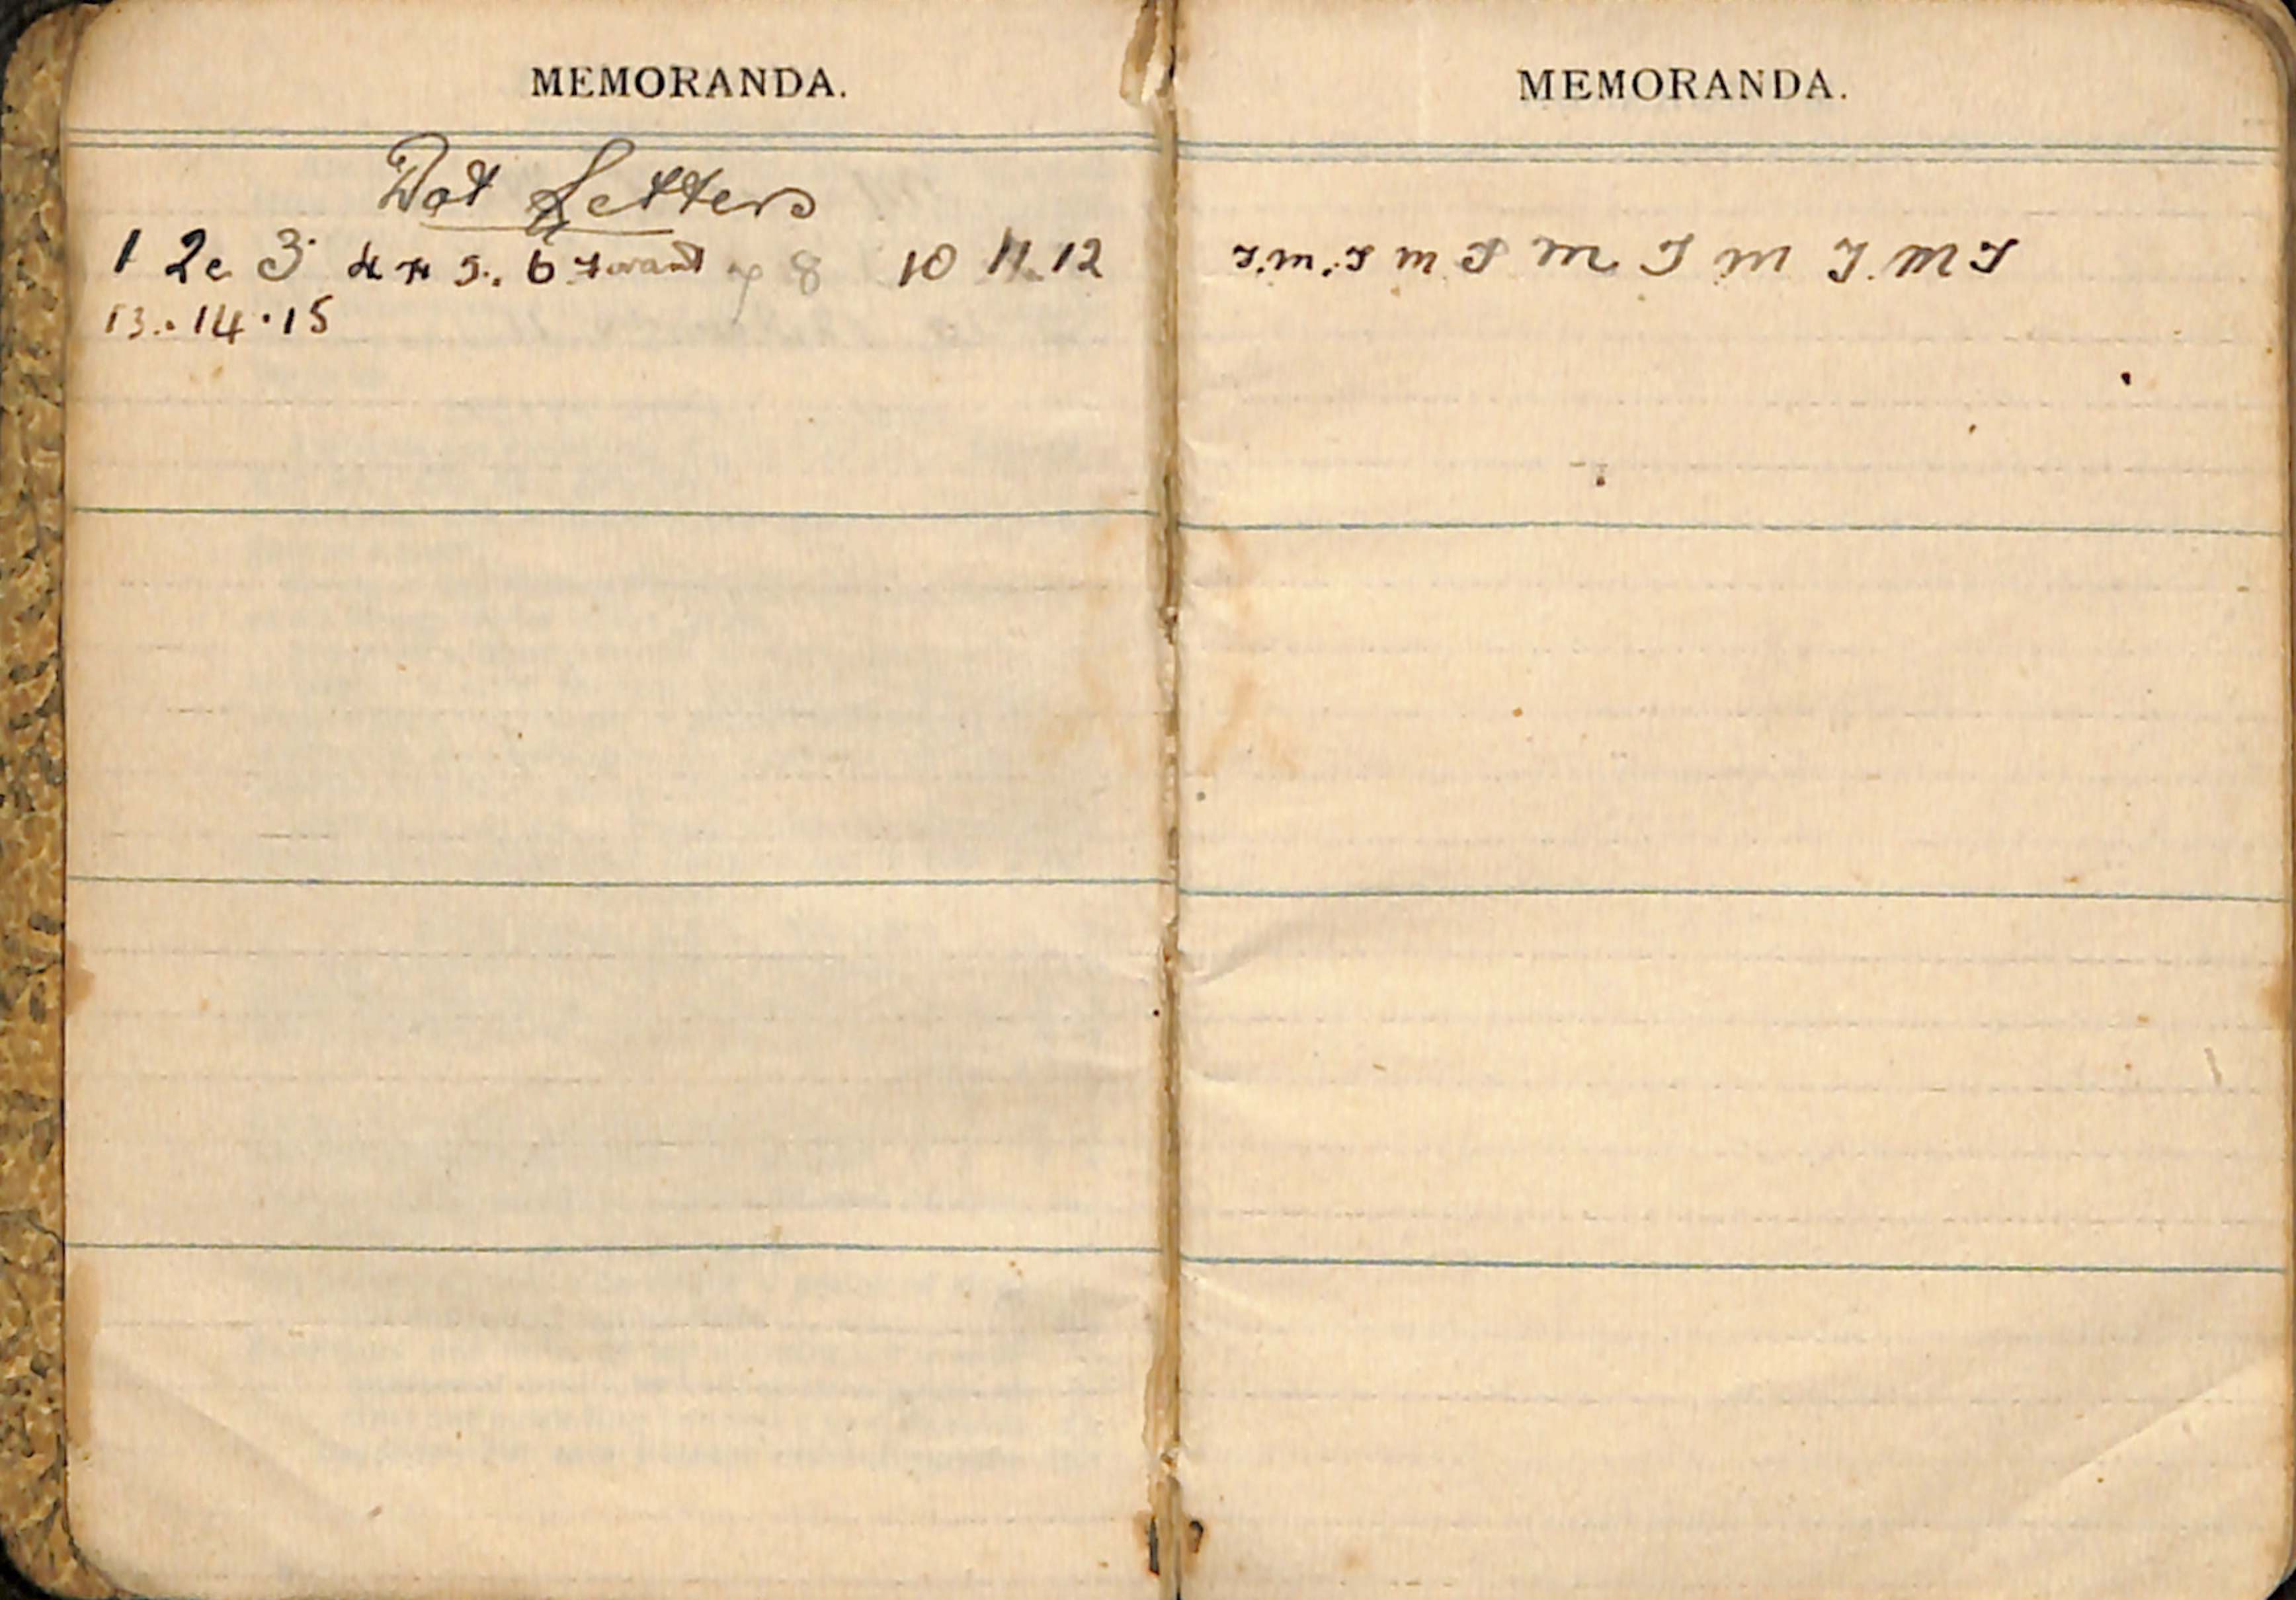 MEMORANDA.
Dot Letters
1 2e 3 4 5. 6 7 want 8 10 11. 12
13. 14 . 15
MEMORANDA.
J. m. J m J m J m J. M J